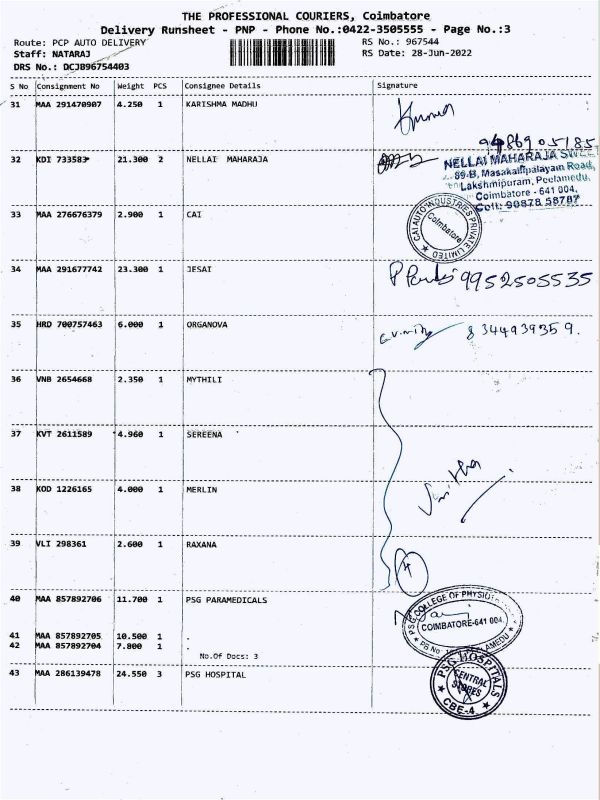 THE PROFESSIONAL COURIERS, Coimbatore
Delivery Runsheet - PNP - Phone No.:0422-3505555 - Page No.:3
Route: PCP AUTO DELIVERY RS No.: 967544
Staff: NATARAJ RS Date: 28-Jun-2022
DRS No.: DCJB96754403
S No Consignment No Weight PCS Consignee Details Signature
31 MAA 291470907 4.250 1 KARISHMA MADHU
9486905185
32 KDI 733583 21.300 2 NELLAI MAHARAJA
NELLAI MAHARAJA
89-B, Masakalipalayam Road,
Lakshmipuram, Peelamedu,
Coimbatore - 641 004,
Cell: 90878 58787
33 MAA 276676379 2.900 1 CAI
CAI AUTO INDUSTRIES PRIVATE LIMITED
Coimbatore
34 MAA 291677742 23.300 1 JESAI
9952505535
35 HRD 700757463 6.000 1 ORGANOVA
8344939359.
36 VNB 2654668 2.350 1 MYTHILI
37 KVT 2611589 4.960 1 SEREENA
38 KOD 1226165 4.000 1 MERLIN
39 VLI 298361 2.600 1 RAXANA
4
40 MAA 857892706 11.700 1 PSG PARAMEDICALS
PSG COLLEGE OF
COIMBATORE-641 004.
41 MAA 857892705 10.500 1 .
42 MAA 857892704 7.800 1 .
No.Of Docs: 3
43 MAA 286139478 24.550 3 PSG HOSPITAL
PSG HOSPITALS
CENTRAL
STORES
CBE-4